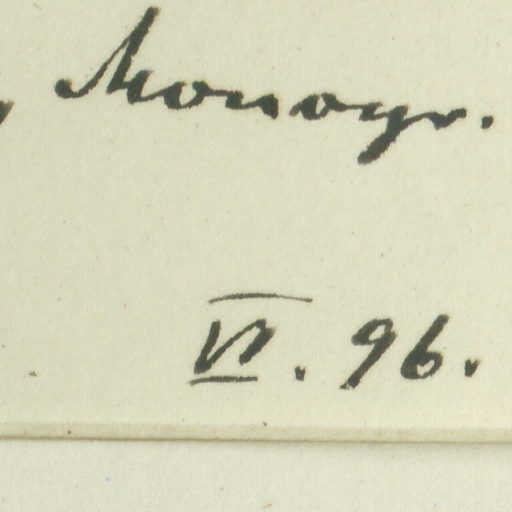 , Monogr.
VI. 96.